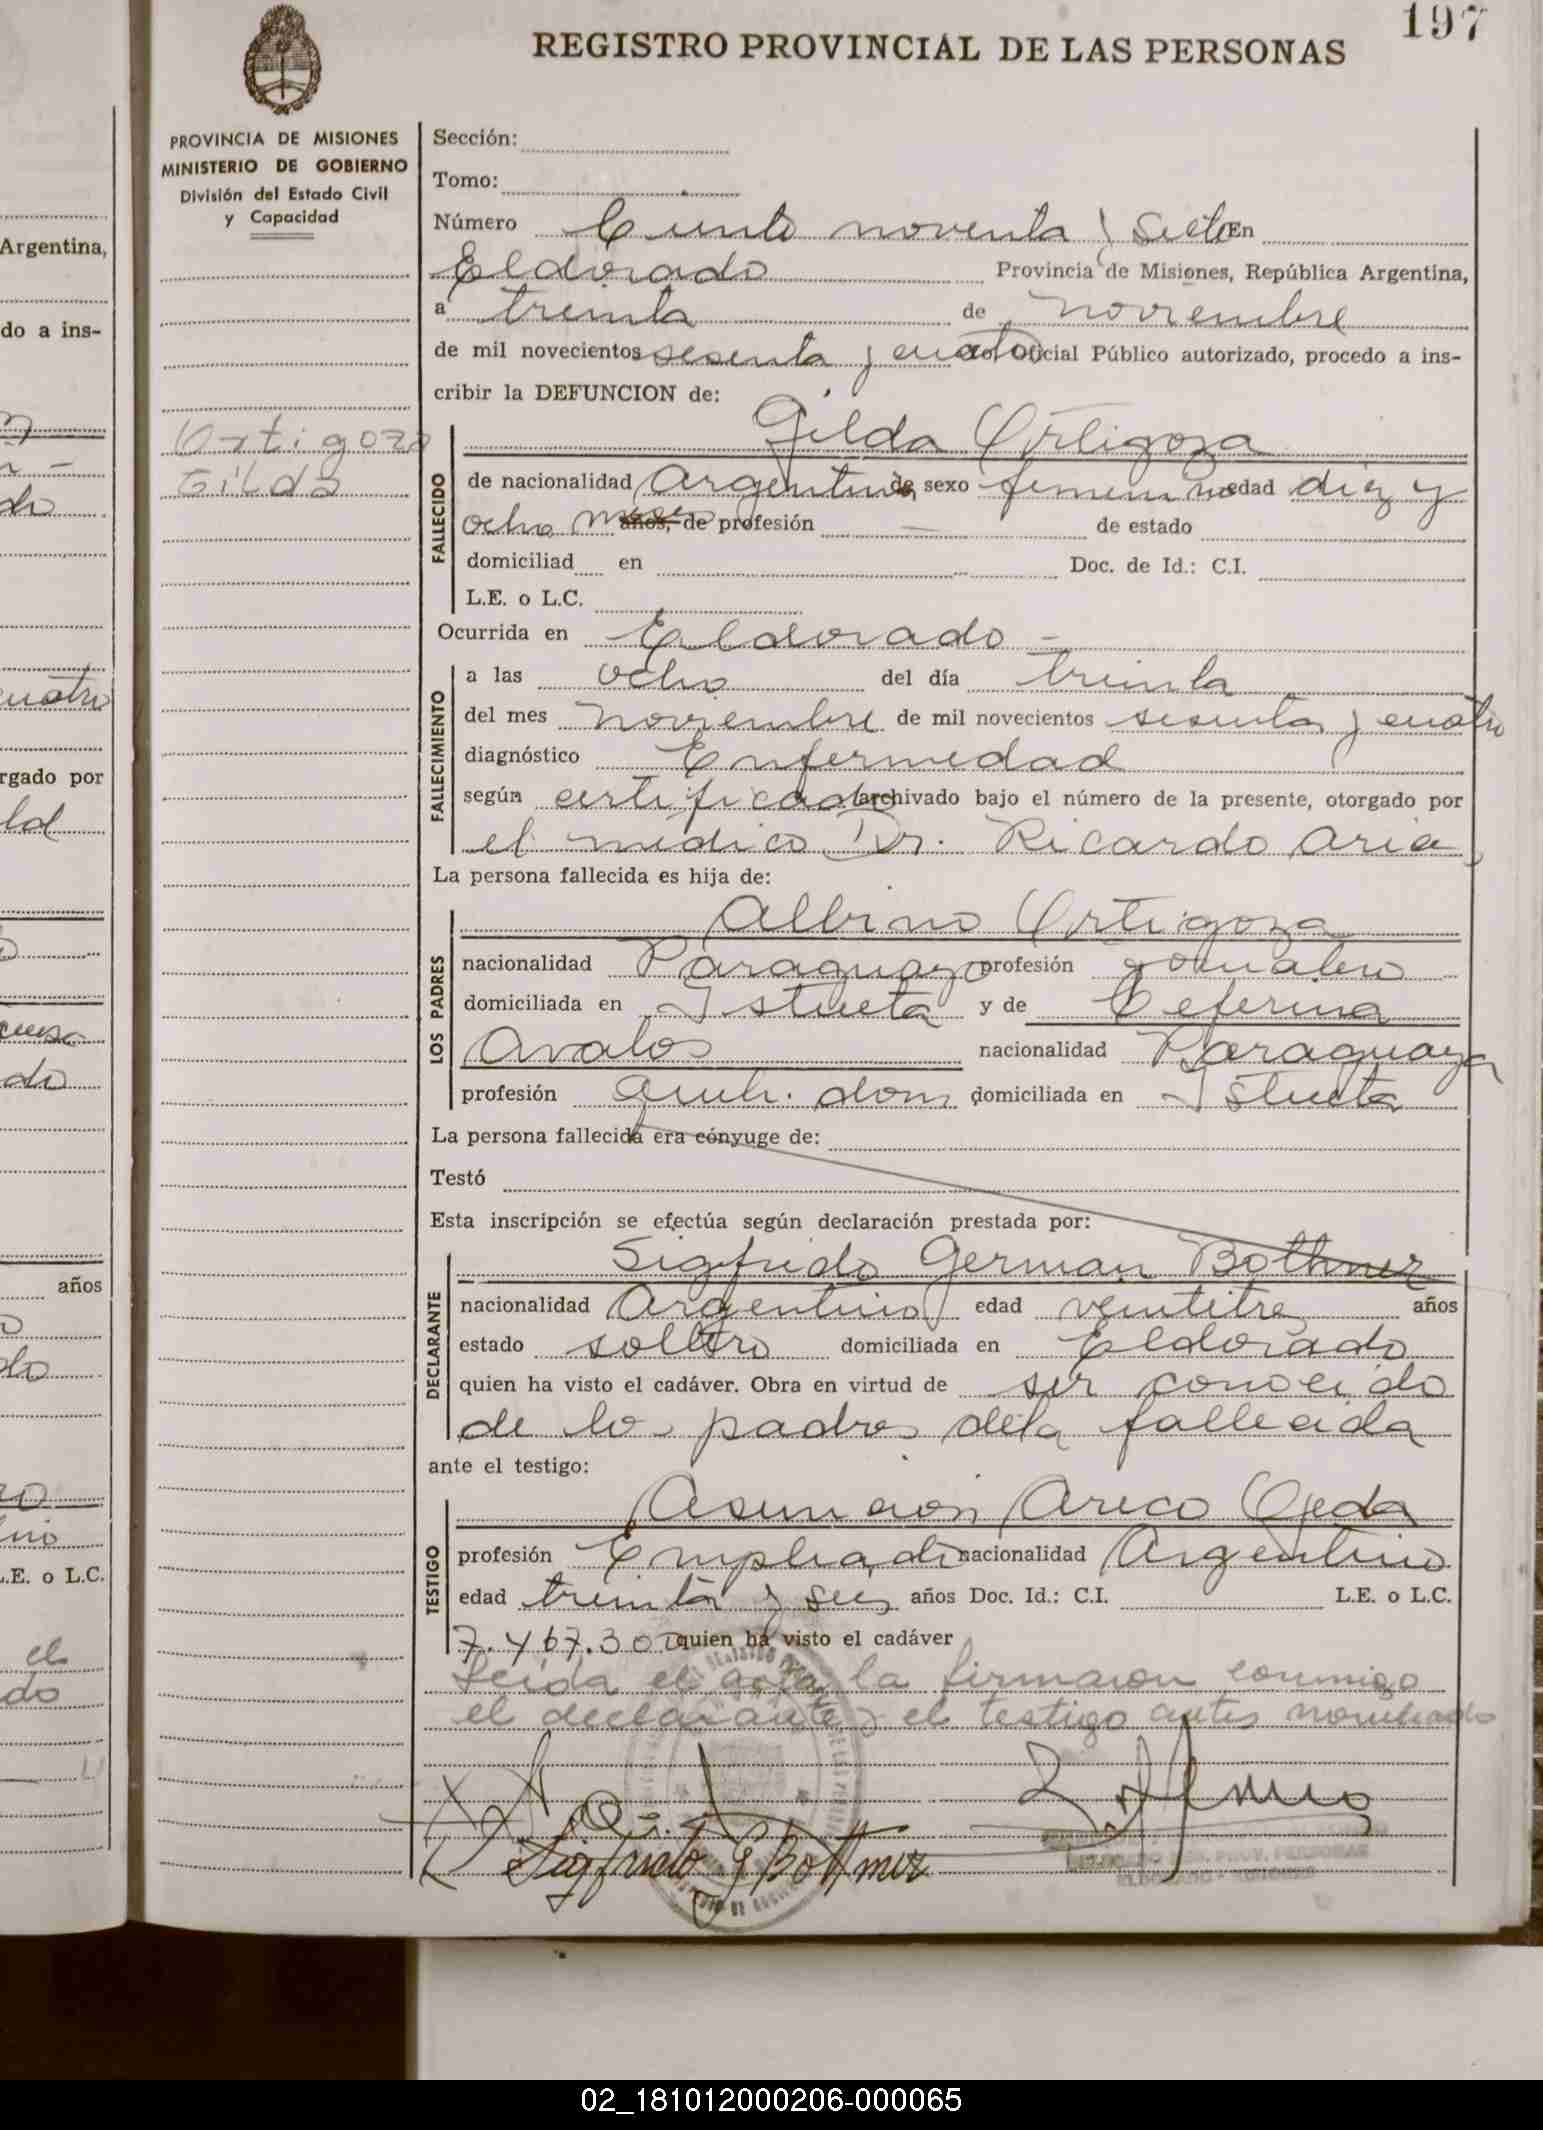 197
REGISTRO PROVINCIAL DE LAS PERSONAS
PROVINCIA DE MISIONES
MINISTERIO DE GOBIERNO
División del Estado Civil
y Capacidad
Ortigoza
Gilda
Sección:
Tomo:
Número Ciento noventa y Siete En
Eldorado Provincia de Misiones, República Argentina,
a treinta de noviembre
de mil novecientos sesenta y cuatro Oficial Público autorizado, procedo a ins-
cribir la DEFUNCION de:
Gilda Ortigoza
FALLECIDO
de nacionalidad Argentina de sexo femenino edad diez y
ocho meses años, de profesión — de estado
domiciliad en Doc. de Id.: C.I.
L.E. o L.C.
Ocurrida en Eldorado -
FALLECIMIENTO
a las ocho del día treinta
del mes noviembre de mil novecientos sesenta y cuatro
diagnóstico Enfermedad
según certificado archivado bajo el número de la presente, otorgado por
el médico Dr. Ricardo Aria
La persona fallecida es hija de:
LOS PADRES
Albino Ortigoza
nacionalidad Paraguayo profesión jornalero
domiciliada en Istueta y de Ceferina
Avalos nacionalidad Paraguaya
profesión queh. dom domiciliada en Istueta
La persona fallecida era cónyuge de:
Testó
Esta inscripción se efectúa según declaración prestada por:
DECLARANTE
Sigfrido German Bothner
nacionalidad Argentino edad veintitre años
estado soltero domiciliada en Eldorado
quien ha visto el cadáver. Obra en virtud de ser conocido
de los padres dela fallecida
ante el testigo:
TESTIGO
Asuncion Areco Ojeda
profesión Empleado nacionalidad Argentino
edad treinta y seis años Doc. Id.: C.I. L.E. o L.C.
7.467.30 quien ha visto el cadáver
Leida el acta, la firmaron conmigo
el declarante y el testigo antes nombrado
Sigfrido G Bothner
Argentina,
do a ins-
cuatro
rgado por
años
L.E. o L.C.
el
do
02_181012000206-000065